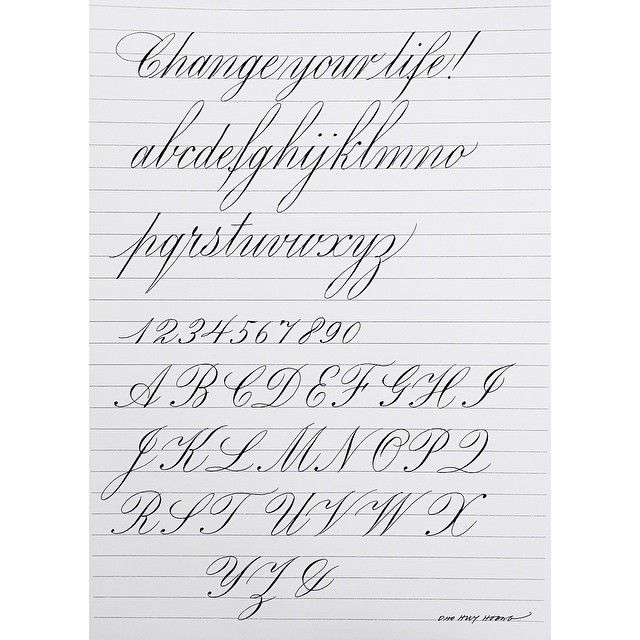 Change your life!
abcdefghijklmno
pqrstuvwxyz
1234567890
ABCDEFGHI
JKLMNOPQ
RSTUVWX
YZ&
DAO HUY HOANG